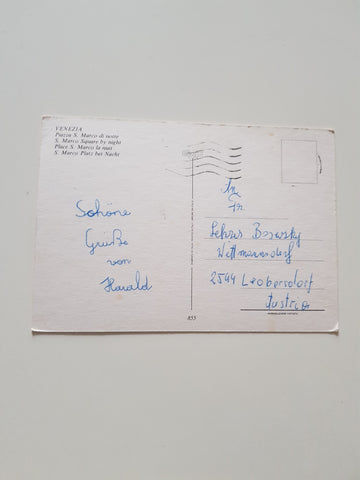 VENEZIA
Piazza S. Marco di notte
S. Marco Square by night
Place S. Marco la nuit
S. Marco Platz bei Nacht
Schöne
Grüße
von
Harald
An
Fr.
Wittmannsdorf
2544 Leobersdorf
Austria
855